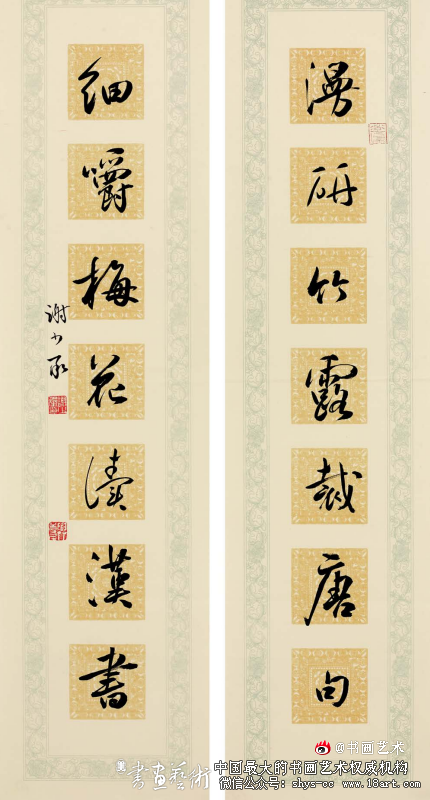 漫研竹露裁唐句
细嚼梅花读汉书
谢少承
@书画艺术
書畫藝術
中国最大的书画艺术权威机构
微信公众号: shys-cc www.18art.com